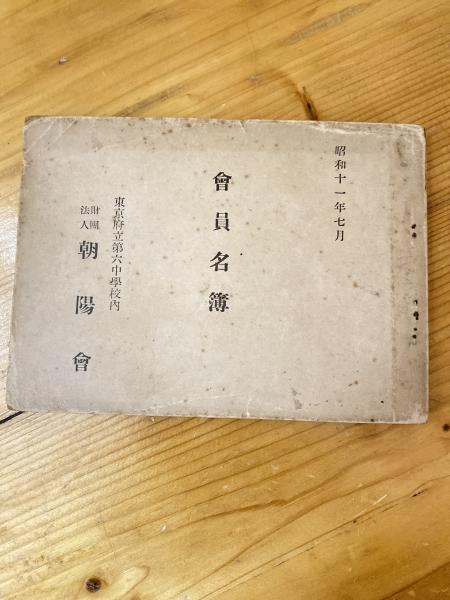 昭和十一年七月
會員名簿
東京府立第六中學校內
財團法人 朝陽會